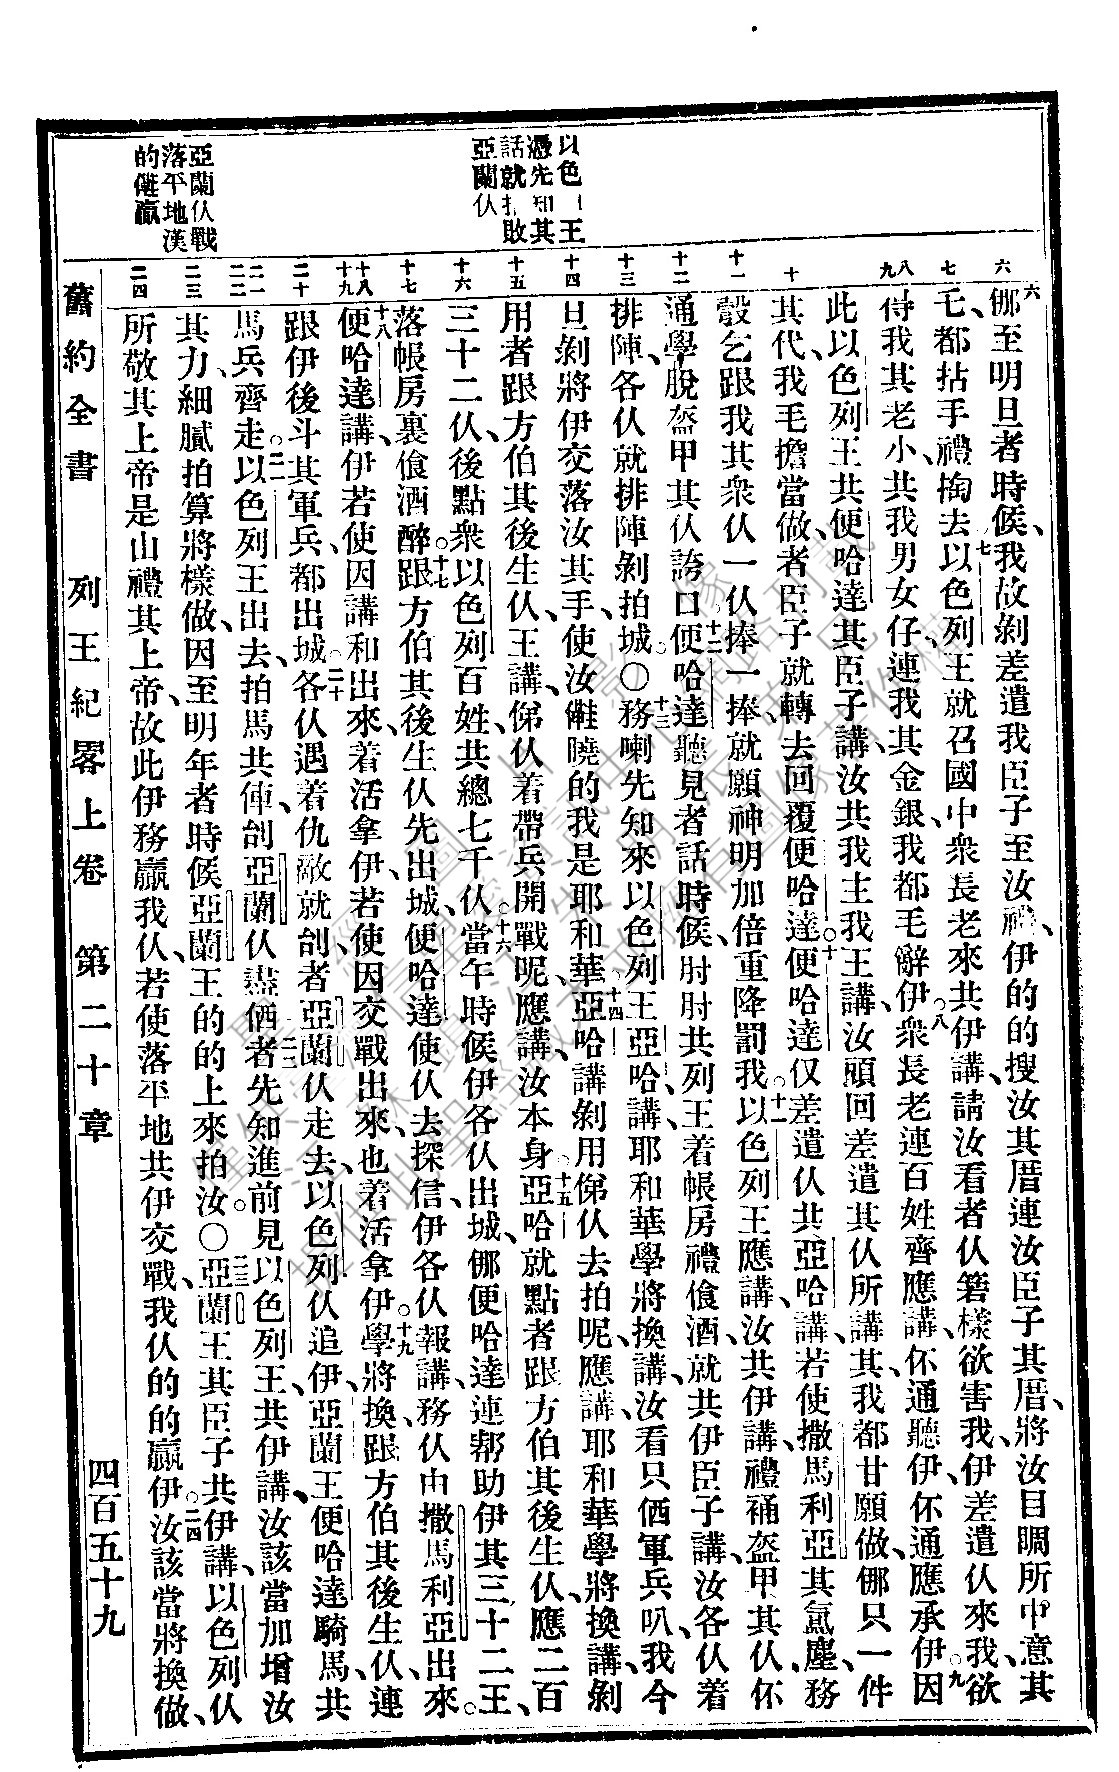 以色 王
憑先知其
話就打敗
亞蘭仈
亞蘭仈戰
落平地漢
的儺贏
六
七
八
九
十
十一
十二
十三
十四
十五
十六
十七
十八
十九
二十
二一
二二
二三
二四
六㑚至明旦者時候、我故剝差遣我臣子至汝禮、伊的的搜汝其厝連汝臣子其厝、將汝目睭所中意其
毛、都拈手禮掏去。七以色列王就召國中衆長老來共伊講、請汝看者仈礐樣欲害我、伊差遣仈來我、欲
討我其老小、共我男女仔、連我其金銀、我都毛辭伊。八衆長老連百姓齊應講、伓通聽伊、伓通應承伊。九因
此以色列王共便哈達其臣子講、汝共我主我王講、汝頭回差遣其仈所講其、我都甘願做、㑚只一件
其代、我毛擔當做、者臣子就轉去回覆便哈達。十便哈達仅差遣仈共亞哈講、若使撒馬利亞其氤塵、務
彀乞跟我其衆仈、一仈捧一捧、就願神明加倍重降罰我。十一以色列王應講、汝共伊講、禮補盔甲其仈、伓
通學脫盔甲其仈誇口。十二便哈達聽見者話時候、肘肘共列王着帳房禮飡酒、就共伊臣子講、汝各仈着
排陣、各仈就排陣剝拍城。〇十三務喇先知來以色列王亞哈講、耶和華學將換講、汝看只偭軍兵叭、我今
旦剝將伊交落汝其手、使汝儺曉的我是耶和華。十四亞哈講、剝用俤仈去拍呢、應講、耶和華學將換講、剝
用者跟方伯其後生仈、王講、俤仈着帶兵開戰呢、應講、汝本身。十五亞哈就點者跟方伯其後生仈、應二百
三十二仈、後點衆以色列百姓、共總七千仈。十六當午時候、伊各仈出城、㑚便哈達連幫助伊其三十二王、
落帳房裏飡酒醉。十七跟方伯其後生仈先出城、便哈達使仈去探信、伊各仈報講、務仈由撒馬利亞出來。
十八便哈達講、伊若使因講和出來、着活拿伊、若使因交戰出來、也着活拿伊。十九學將換跟方伯其後生仈、連
跟伊後斗其軍兵、都出城。二十各仈遇着仇敵就刣、者亞蘭仈走去、以色列仈追伊、亞蘭王便哈達騎馬、共
馬兵齊走。二一以色列王出去、拍馬共俥、刣亞蘭仈盡偭。二二者先知進前見以色列王、共伊講、汝該當加增汝
其力、細膩拍算將樣做、因至明年者時候、亞蘭王的的上來拍汝。〇二三亞蘭王其臣子共伊講、以色列仈
所敬其上帝是山禮其上帝、故此伊務贏我仈、若使落平地共伊交戰、我仈的的贏伊。二四汝該當將換做、
舊約全書 列王紀畧上卷 第二十章 四百五十九